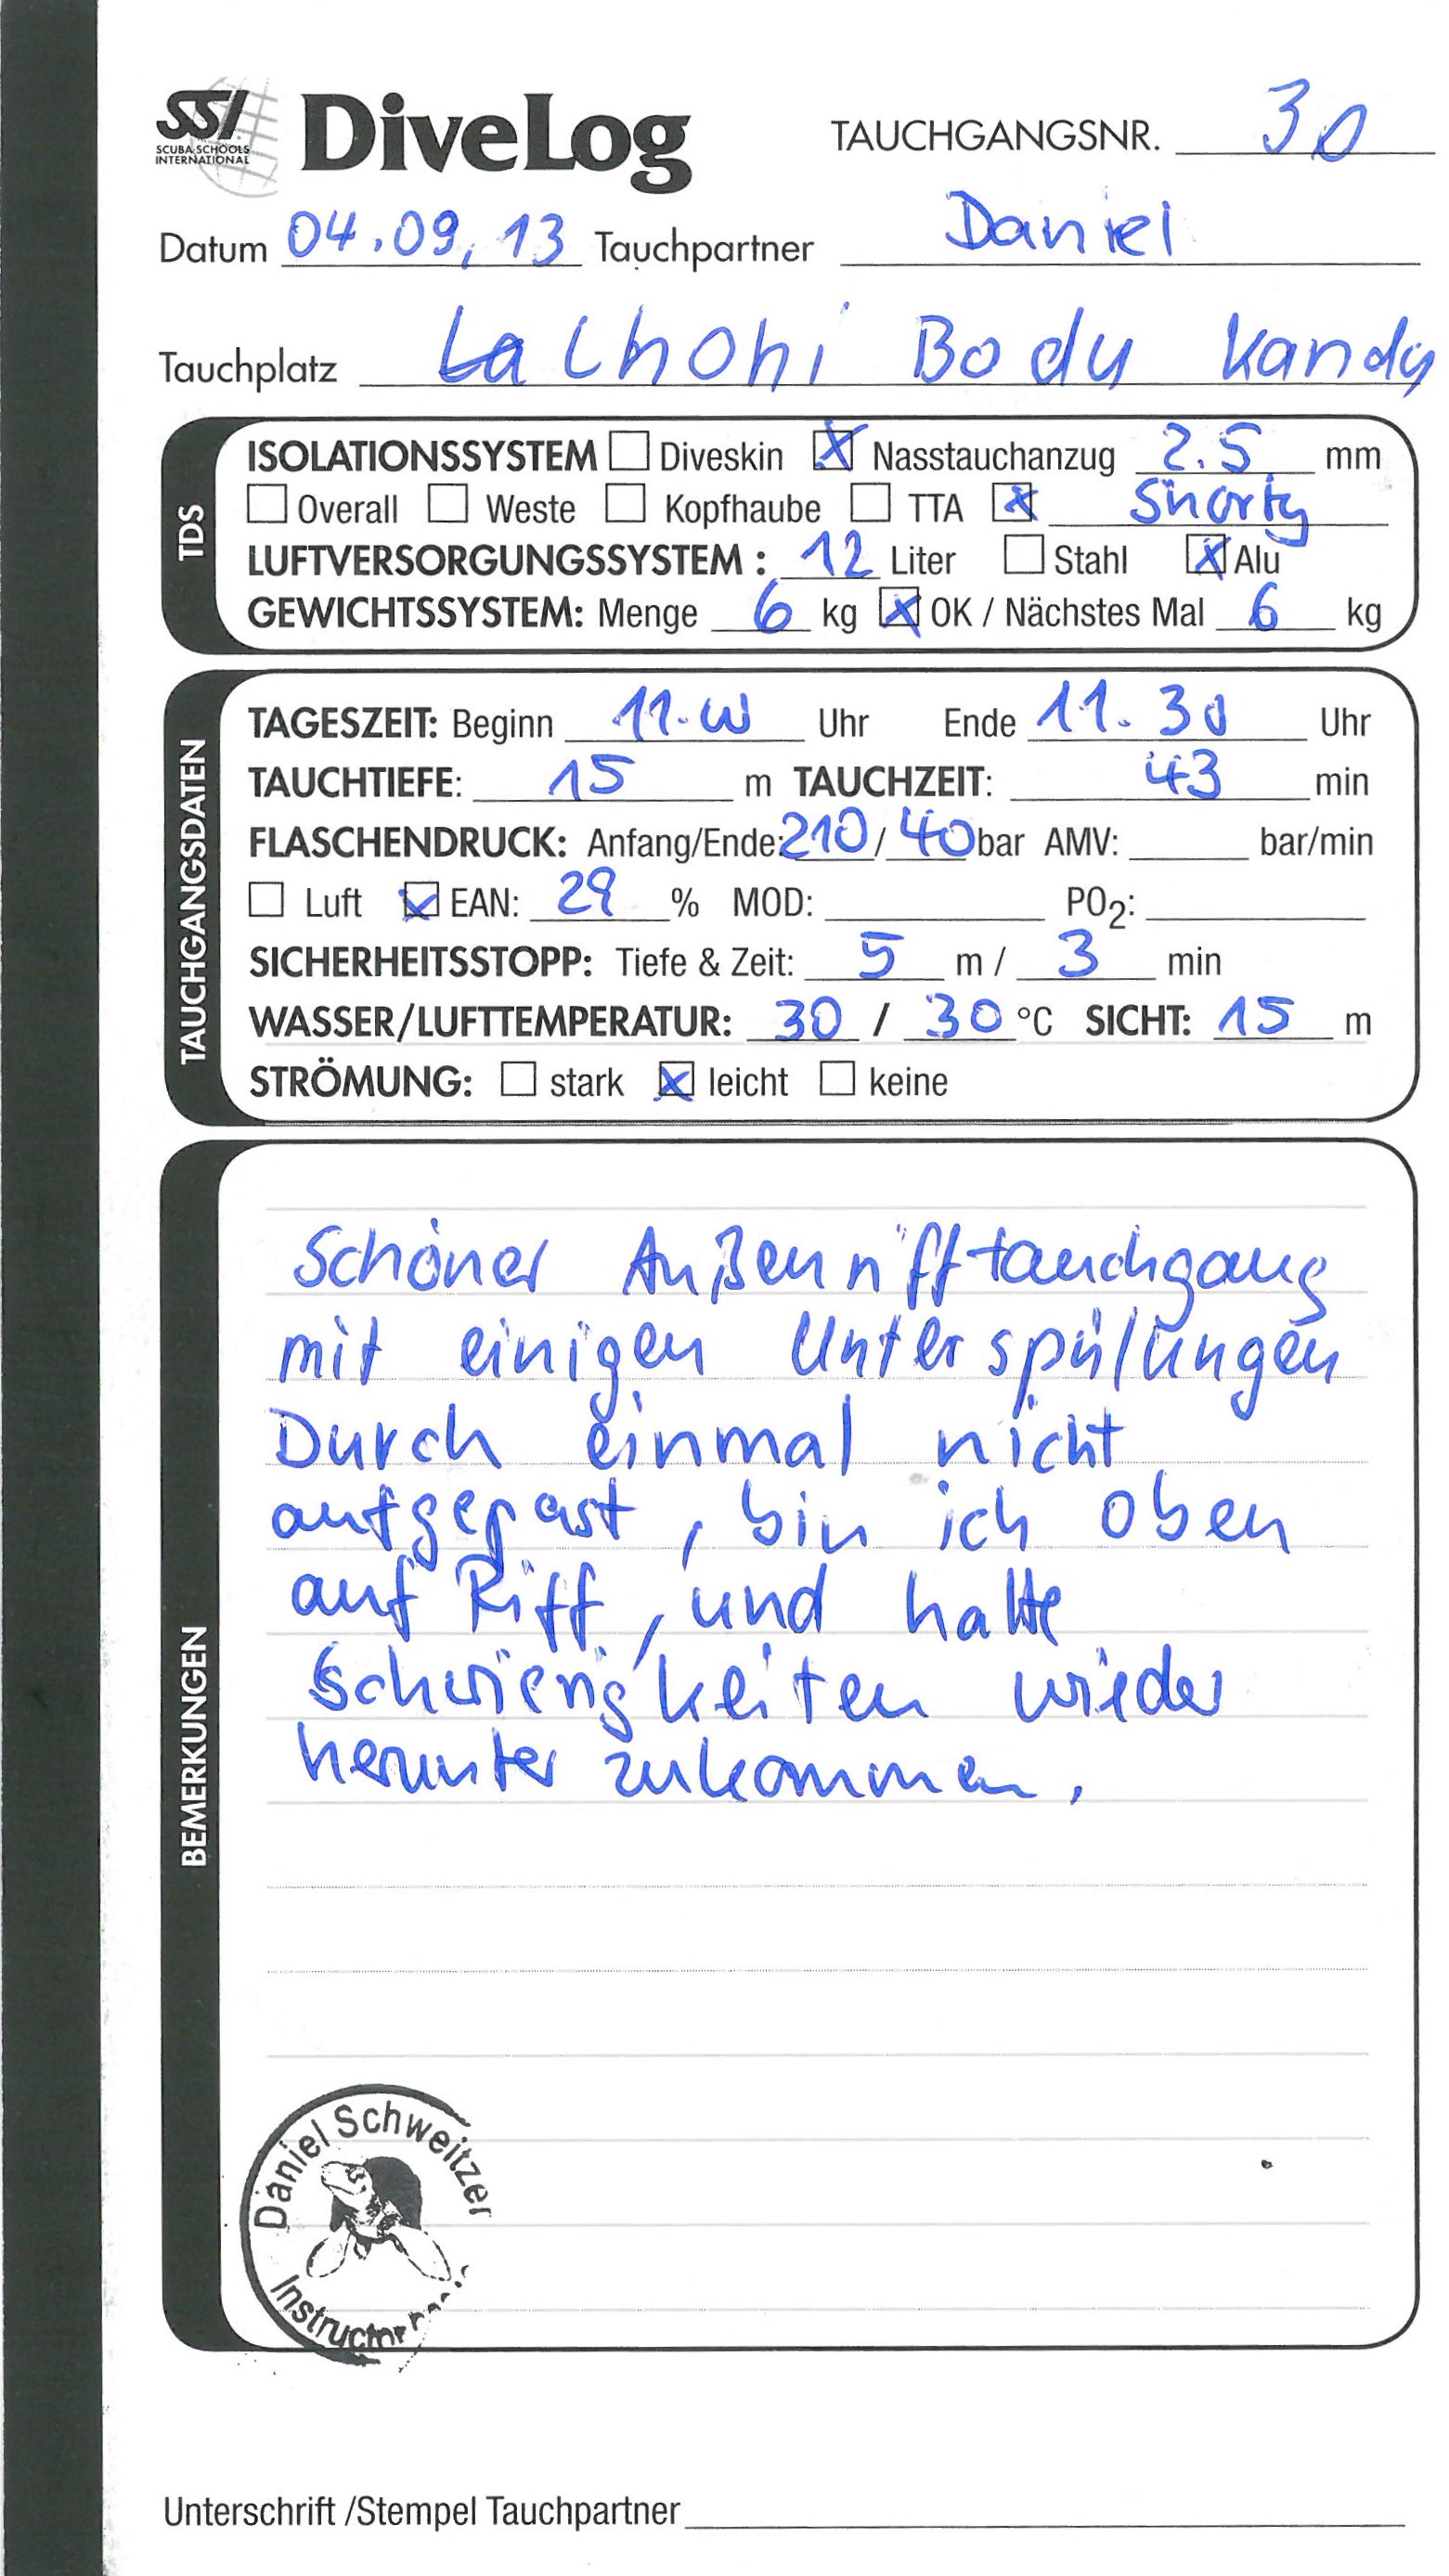 SSI
SCUBA SCHOOLS
INTERNATIONAL
DiveLog
TAUCHGANGSNR. 30
Datum 04.09.13 Tauchpartner Daniel
Tauchplatz Lhohi Body Kandy
TDS
ISOLATIONSSYSTEM Diveskin X Nasstauchanzug 2.5 mm
Overall Weste Kopfhaube TTA X Shorty
LUFTVERSORGUNGSSYSTEM: 12 Liter Stahl X Alu
GEWICHTSSYSTEM: Menge 6 kg X OK / Nächstes Mal 6 kg
TAUCHGANGSDATEN
TAGESZEIT: Beginn 11.00 Uhr Ende 11.30 Uhr
TAUCHTIEFE: 15 m TAUCHZEIT: 43 min
FLASCHENDRUCK: Anfang/Ende: 210 / 40 bar AMV: bar/min
Luft X EAN: 29 % MOD: PO2:
SICHERHEITSSTOPP: Tiefe & Zeit: 5 m / 3 min
WASSER/LUFTTEMPERATUR: 30 / 30 °C SICHT: 15 m
STRÖMUNG: stark X leicht keine
BEMERKUNGEN
Schöner Außenrifftauchgang
mit einigen Unterspülungen
Durch einmal nicht
aufgepast, bin ich oben
auf Riff, und hatte
schwierigkeiten wieder
herunter zukommen.
Daniel Schweitzer
Instructor
Unterschrift /Stempel Tauchpartner